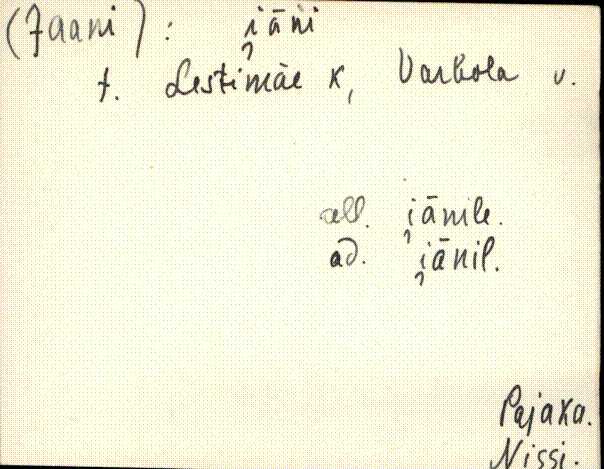 (Jaani) : i̯āni
t. Lestimäe K, Varbola v.
all. i̯ānile.
ad. i̯ānil.
Pajaka.
Nissi.